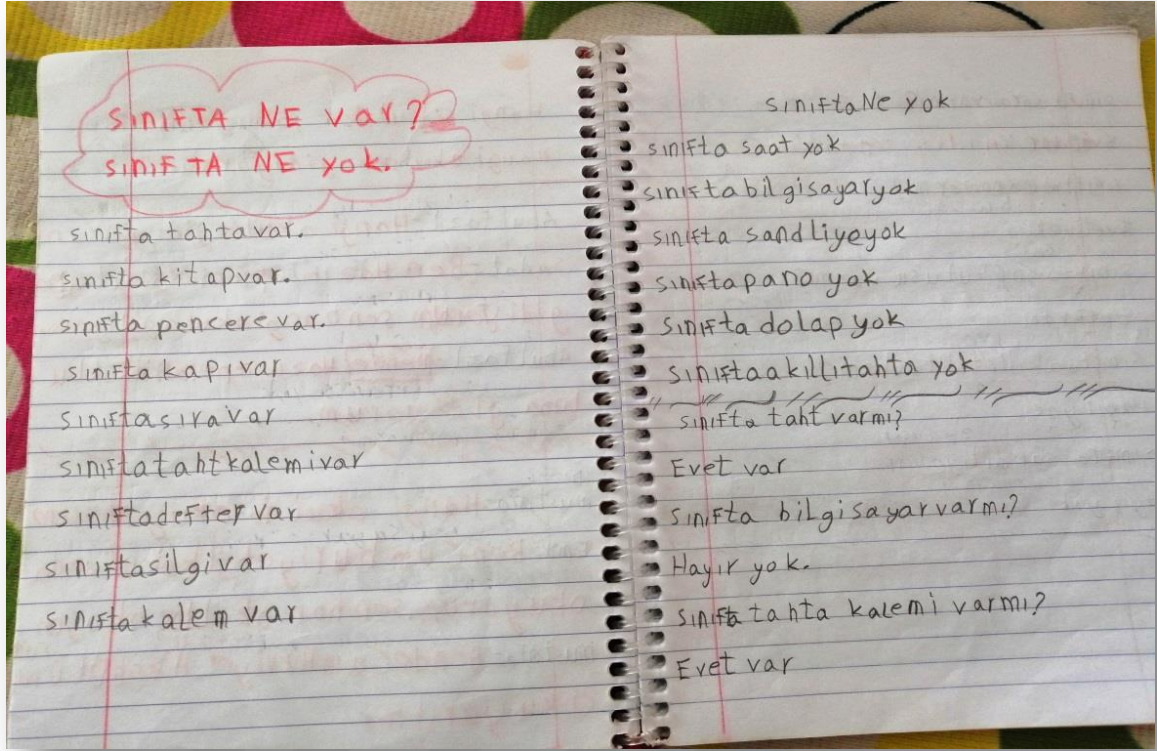 SINIFTA NE var?
SINIFTA NE yok.
sınıfta tahtavar.
sınıfta kitapvar.
sınıfta pencere var.
sınıfta kapıvar
sınıftasıravar
sınıftatahtkalemivar
sınıftadefter var
sınıftasilgivar
sınıftakalem var
sınıftaNe yok
sınıfta saat yok
sınıftabilgisayaryok
sınıfta sandliyeyok
sınıftapano yok
sınıfta dolap yok
sınıftaakıllıtahta yok
sınıfta taht varmı?
Evet var
sınıfta bilgisayarvarmı?
Hayır yok.
sınıfta tahta kalemi varmı?
Evet var